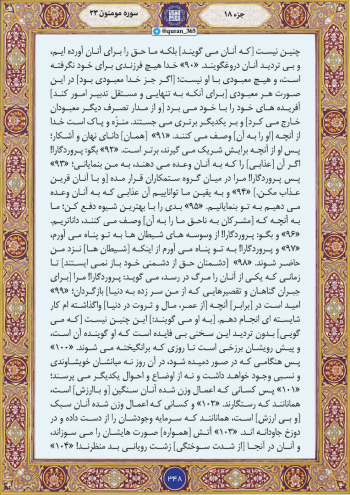 جزء ۱۸
سوره مومنون ۲۳
@quran_365
چنین نیست [که آنان می گویند] بلکه ما حق را برای آنان آورده ایم،
و بی تردید آنان دروغگویند. «۹۰» خدا هیچ فرزندی برای خود نگرفته
است، و هیچ معبودی با او نیست؛ [اگر جز خدا معبودی بود] در این
صورت هر معبودی [برای آنکه به تنهایی و مستقل تدبیر امور کند]
آفریده های خود را با خود می برد [و از مدار تصرف دیگر معبودان
خارج می کرد] و بر یکدیگر برتری می جستند. منزّه و پاک است خدا
از آنچه [او را به آن] وصف می کنند. «۹۱» [همان] دانای نهان و آشکار؛
پس او از آنچه برایش شریک می گیرند، برتر است. «۹۲» بگو: پروردگارا!
اگر آن [عذابی] را که به آنان وعده می دهند، به من بنمایانی؛ «۹۳»
پس پروردگارا! مرا در میان گروه ستمکاران قرار مده [و با آنان قرین
عذاب مکن.] «۹۴» و به یقین ما تواناییم آن عذابی که به آنان وعده
می دهیم به تو بنمایانیم. «۹۵» بدی را با بهترین شیوه دفع کن؛ ما
به آنچه که [مشرکان به ناحق ما را به آن] وصف می کنند، داناتریم.
«۹۶» و بگو: پروردگارا! از وسوسه های شیطان ها به تو پناه می آورم،
«۹۷» و پروردگارا! به تو پناه می آورم از اینکه [شیطان ها] نزد من
حاضر شوند. «۹۸» [دشمنان حق از دشمنی خود باز نمی ایستند] تا
زمانی که یکی از آنان را مرگ در رسد، می گوید: پروردگارا! مرا [برای
جبران گناهان و تقصیرهایی که از من سر زده به دنیا] بازگردان؛ «۹۹»
امید است در [برابر] آنچه [از عمر، مال و ثروت در دنیا] واگذاشته ام کار
شایسته ای انجام دهم. [به او می گویند:] این چنین نیست [که می
گویی] بدون تردید این سخنی بی فایده است که او گوینده آن است،
و پیش رویشان برزخی است تا روزی که برانگیخته می شوند. «۱۰۰»
پس هنگامی که در صور دمیده شود، در آن روز نه میانشان خویشاوندی
و نسبی وجود خواهد داشت و نه از اوضاع و احوال یکدیگر می پرسند؛
«۱۰۱» پس کسانی که اعمال وزن شده آنان سنگین [و باارزش] است،
همانانند که رستگارند. «۱۰۲» و کسانی که اعمال وزن شده آنان سبک
[و بی ارزش] است، همانانند که سرمایه وجودشان را از دست داده و در
دوزخ جاودانه اند. «۱۰۳» آتش [همواره] صورت هایشان را می سوزاند،
و آنان در آنجا [از شدت سوختگی] زشت رویانی بد منظرند! «۱۰۴»
۳۴۸